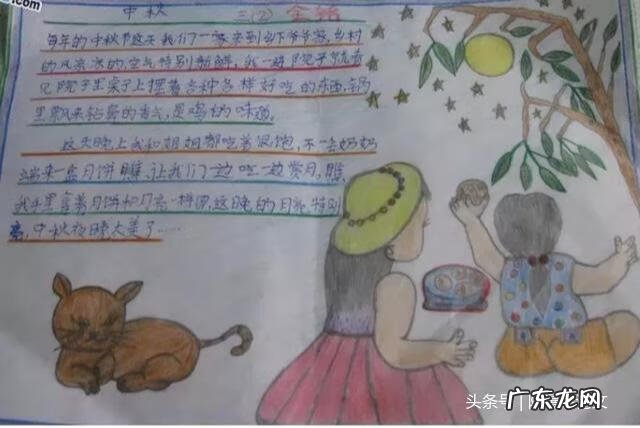 中秋 三(2)
每年的中秋节这天我们一家来到乡下爷爷家,乡村
的风凉凉的空气特别新鲜,我一进院子就看
见院子里桌子上摆着各种各样好吃的东西,锅
里飘来钻鼻的香气,是鸡的味道。
这天晚上我和姐姐都吃着很饱,不一会奶奶
端来一盘月饼瞧,让我们一边吃一边赏月,瞧,
我手里拿着月饼和月亮一样圆,这晚的月亮特别
亮,中秋夜晚太美了……
头条号
广东龙网